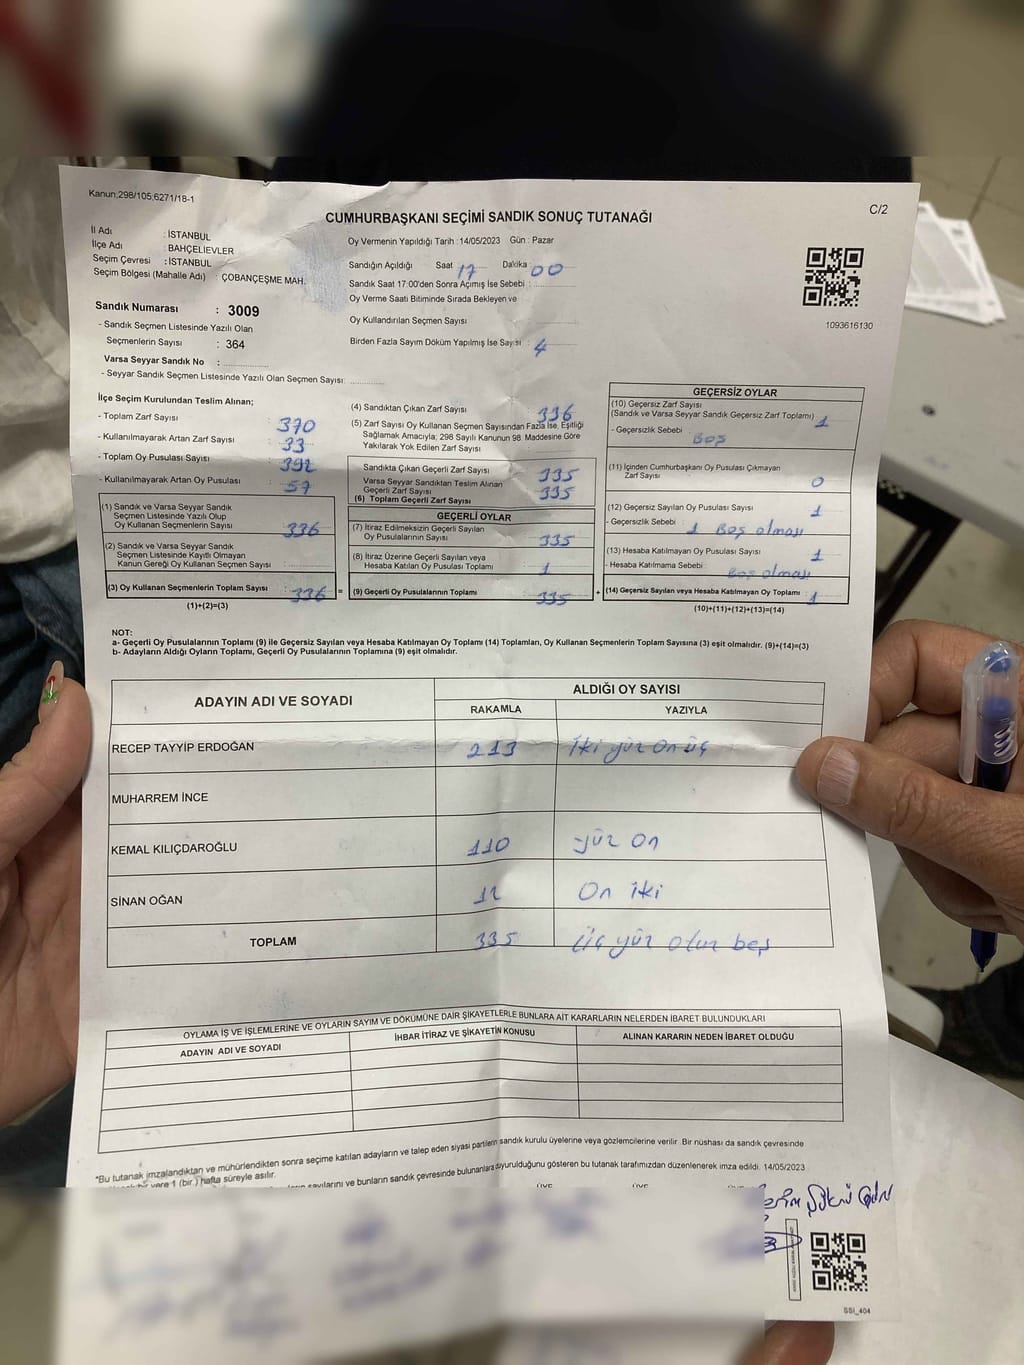 Kanun:298/105;6271/18-1
C/2
CUMHURBAŞKANI SEÇİMİ SANDIK SONUÇ TUTANAĞI
İl Adı : İSTANBUL
İlçe Adı : BAHÇELİEVLER
Seçim Çevresi : İSTANBUL
Seçim Bölgesi (Mahalle Adı) : ÇOBANÇEŞME MAH.
Sandık Numarası : 3009
- Sandık Seçmen Listesinde Yazılı Olan
Seçmenlerin Sayısı : 364
Varsa Seyyar Sandık No :
- Seyyar Sandık Seçmen Listesinde Yazılı Olan Seçmen Sayısı:
Oy Vermenin Yapıldığı Tarih : 14/05/2023 Gün : Pazar
Sandığın Açıldığı Saat 17 Dakika 00
Sandık Saat 17:00'den Sonra Açımış İse Sebebi :
Oy Verme Saati Bitiminde Sırada Bekleyen ve
Oy Kullandırılan Seçmen Sayısı
Birden Fazla Sayım Döküm Yapılmış İse Sayısı : 4
1093616130
İlçe Seçim Kurulundan Teslim Alınan;
- Toplam Zarf Sayısı 370
- Kullanılmayarak Artan Zarf Sayısı 33
- Toplam Oy Pusulası Sayısı 392
- Kullanılmayarak Artan Oy Pusulası 57
(1) Sandık ve Varsa Seyyar Sandık
Seçmen Listesinde Yazılı Olup
Oy Kullanan Seçmenlerin Sayısı 336
(2) Sandık ve Varsa Seyyar Sandık
Seçmen Listesinde Kayıtlı Olmayan
Kanun Gereği Oy Kullanan Seçmen Sayısı
(3) Oy Kullanan Seçmenlerin Toplam Sayısı 336 =
(1)+(2)=(3)
(4) Sandıktan Çıkan Zarf Sayısı 336
(5) Zarf Sayısı Oy Kullanan Seçmen Sayısından Fazla İse, Eşitliği
Sağlamak Amacıyla; 298 Sayılı Kanunun 98. Maddesine Göre
Yakılarak Yok Edilen Zarf Sayısı
Sandıkta Çıkan Geçerli Zarf Sayısı 335
Varsa Seyyar Sandıktan Teslim Alınan
Geçerli Zarf Sayısı 335
(6) Toplam Geçerli Zarf Sayısı
GEÇERLİ OYLAR
(7) İtiraz Edilmeksizin Geçerli Sayılan
Oy Pusulalarının Sayısı 335
(8) İtiraz Üzerine Geçerli Sayılan veya
Hesaba Katılan Oy Pusulası Toplamı 1
(9) Geçerli Oy Pusulalarının Toplamı 335 +
GEÇERSİZ OYLAR
(10) Geçersiz Zarf Sayısı
(Sandık ve Varsa Seyyar Sandık Geçersiz Zarf Toplamı) 1
- Geçersizlik Sebebi : Boş
(11) İçinden Cumhurbaşkanı Oy Pusulası Çıkmayan
Zarf Sayısı 0
(12) Geçersiz Sayılan Oy Pusulası Sayısı 1
- Geçersizlik Sebebi : 1 Boş olması
(13) Hesaba Katılmayan Oy Pusulası Sayısı 1
- Hesaba Katılmama Sebebi : Boş olması
(14) Geçersiz Sayılan veya Hesaba Katılmayan Oy Toplamı 1
(10)+(11)+(12)+(13)=(14)
NOT:
a- Geçerli Oy Pusulalarının Toplamı (9) ile Geçersiz Sayılan veya Hesaba Katılmayan Oy Toplamı (14) Toplamları, Oy Kullanan Seçmenlerin Toplam Sayısına (3) eşit olmalıdır. (9)+(14)=(3)
b- Adayların Aldığı Oyların Toplamı, Geçerli Oy Pusulalarının Toplamına (9) eşit olmalıdır.
ADAYIN ADI VE SOYADI ALDIĞI OY SAYISI
RAKAMLA YAZIYLA
RECEP TAYYİP ERDOĞAN 213 İki yüz on üç
MUHARREM İNCE
KEMAL KILIÇDAROĞLU 110 yüz on
SİNAN OĞAN 12 On iki
TOPLAM 335 Üç yüz otuz beş
OYLAMA İŞ VE İŞLEMLERİNE VE OYLARIN SAYIM VE DÖKÜMÜNE DAİR ŞİKAYETLERLE BUNLARA AİT KARARLARIN NELERDEN İBARET BULUNDUKLARI
ADAYIN ADI VE SOYADI İHBAR İTİRAZ VE ŞİKAYETİN KONUSU ALINAN KARARIN NEDEN İBARET OLDUĞU
*Bu tutanak imzalandıktan ve mühürlendikten sonra seçime katılan adayların ve talep eden siyasi partilerin sandık kurulu üyelerine veya gözlemcilerine verilir. Bir nüshası da sandık çevresinde
yere 1 (bir) hafta süreyle asılır.
sayılarını ve bunların sandık çevresinde bulunanlara duyurulduğunu gösteren bu tutanak tarafımızdan düzenlenerek imza edildi. 14/05/2023
ÜYE ÜYE
SSI_404